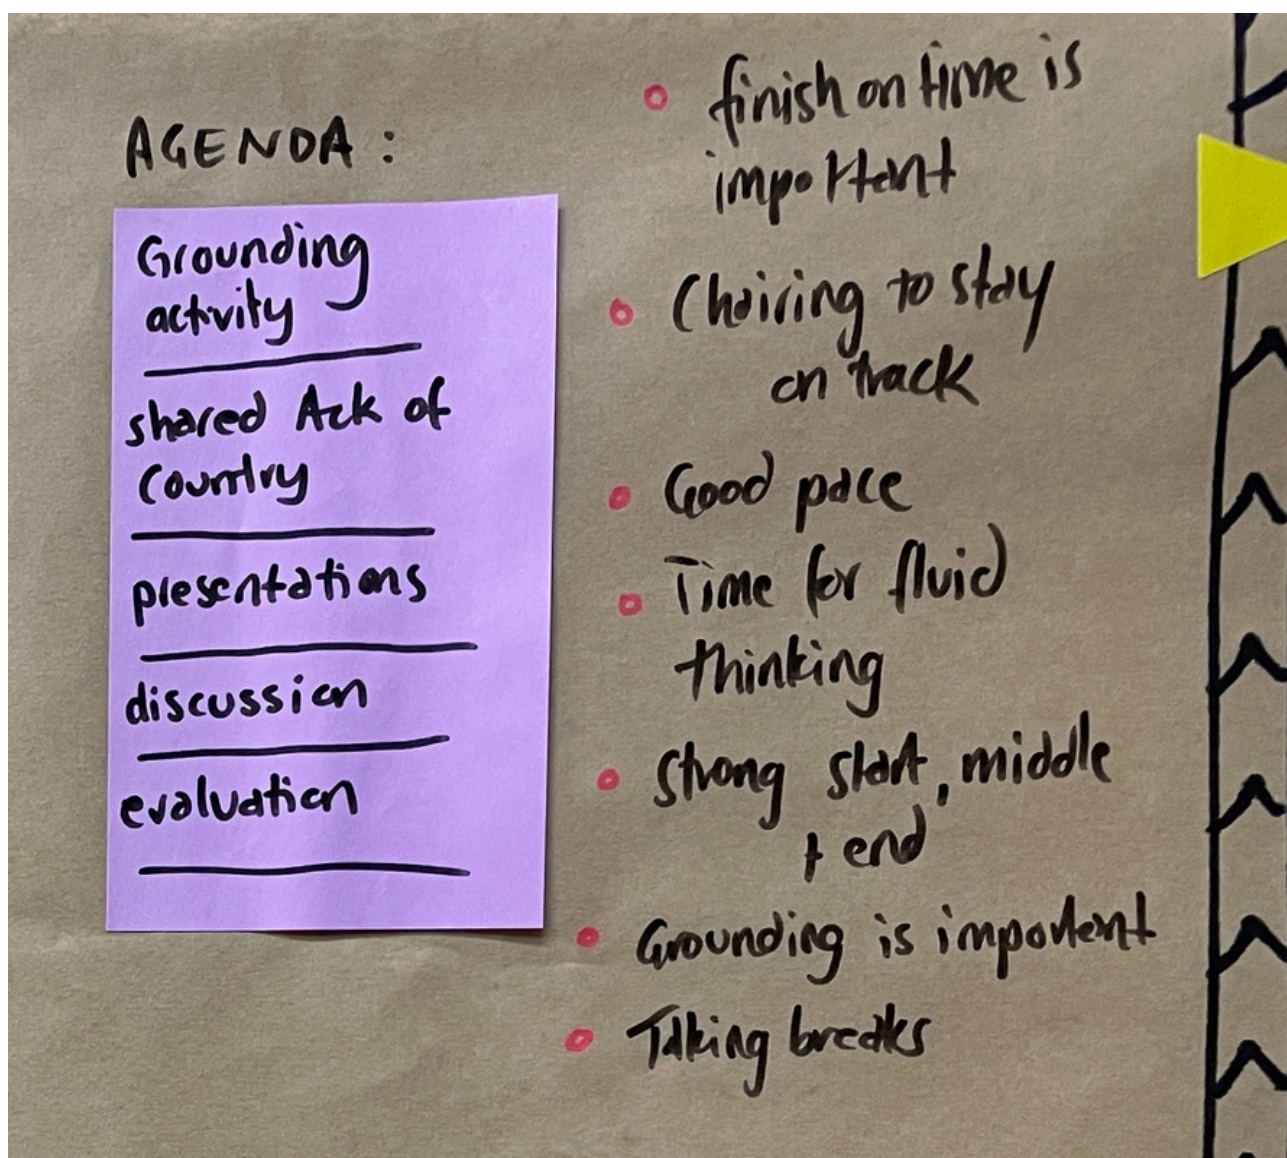 AGENDA :
Grounding
activity
shared Ack of
Country
presentations
discussion
evaluation
finish on time is
important
Chairing to stay
on track
Good pace
Time for fluid
thinking
Strong start, middle
+ end
Grounding is important
Talking breaks